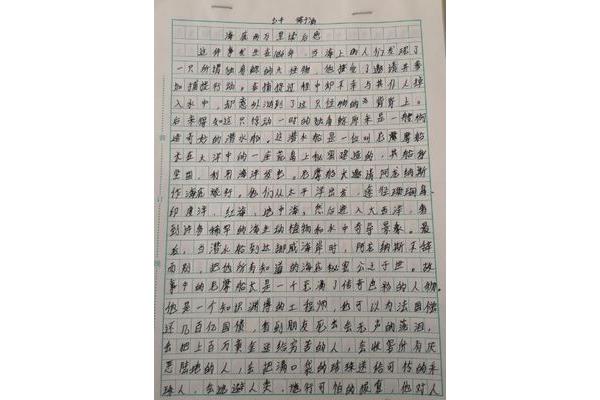 海底两万里读后感
这件事发生在1866年,当海上的人们发现了
一只所谓独角鲸的大怪物,他接受了邀请并参
加捕捉行动。在捕捉过程中却不幸与其仆人掉
入水中,却意外游到了这只怪物的脊背上。
后来得知这只惊动一时的独角鲸原来是一艘构
造奇妙的潜水船。这潜水船是一位叫尼摩船
长在大洋中的一座荒岛上秘密建造的,其船身
坚固,利用海洋发电。尼摩船长邀请阿龙纳斯
作海底旅行。他们从太平洋出发,途径珊瑚岛、
印度洋,红海,地中海,然后进入大西洋,看
到许多稀罕的海生动植物和水中奇异景象。最
后,当潜水船到达挪威海岸时,阿龙纳斯不辞
而别,把他所有知道的海底秘密公之于世。故
事中的尼摩船长是一个充满了传奇色彩的人物。
他是一个知识渊博的工程师,他可以为法国偿
还几百亿国债,看到朋友死去会无声的落泪,
会把上百万黄金送给穷苦的人,会收容所有厌
恶陆地的人,会把满口袋的珍珠送给可怜的采
珠人,会逃避人类,施行可怕的报复,他对人